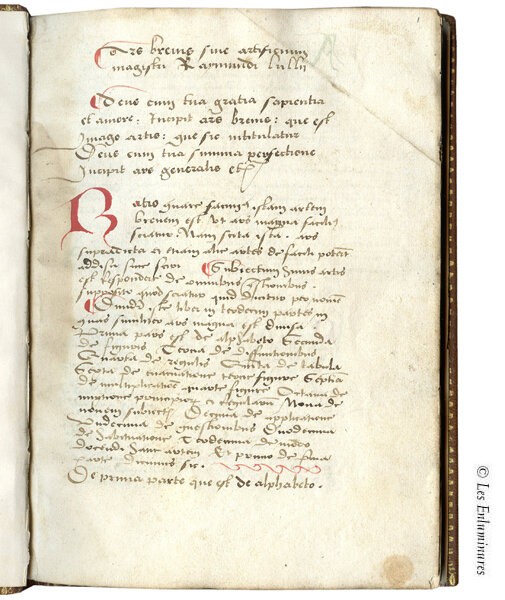 Ars brevis sive artificium
magistri Raimundi lullii
Deus cum tua gratia sapientia
et amore: Incipit ars brevis: que est
Imago artis: que sic intitulatur
Deus cum tua summa perfectione
Incipit ars generalis et
Ratio quare facimus istam artem
brevem est ut ars magna facilius
sciatur. Nam scita ista. ars
supradicta et etiam alie artes de facili poterunt
addisci sive sciri. Subiectum huius artis
est respondere de omnibus questionibus.
supposito quod sciatur quid dicitur per nomen
Dividitur iste liber in tredecim partes in
quas similiter ars magna est divisa
Prima pars est de alphabeto Secunda
de figuris Tercia de diffinitionibus
Quarta de regulis Quinta de tabula
Sexta de evacuatione tercie figure Septima
de multiplicatione quarte figure Octava de
mixtione principiorum et regularum Nona de
novem subiectis Decima de applicatione
Undecima de questionibus Duodecima
de habituatione Tredecima de modo
docendi hanc artem Et primo de prima
parte dicimus sic.
De prima parte que est de alphabeto.
© Les Enluminures